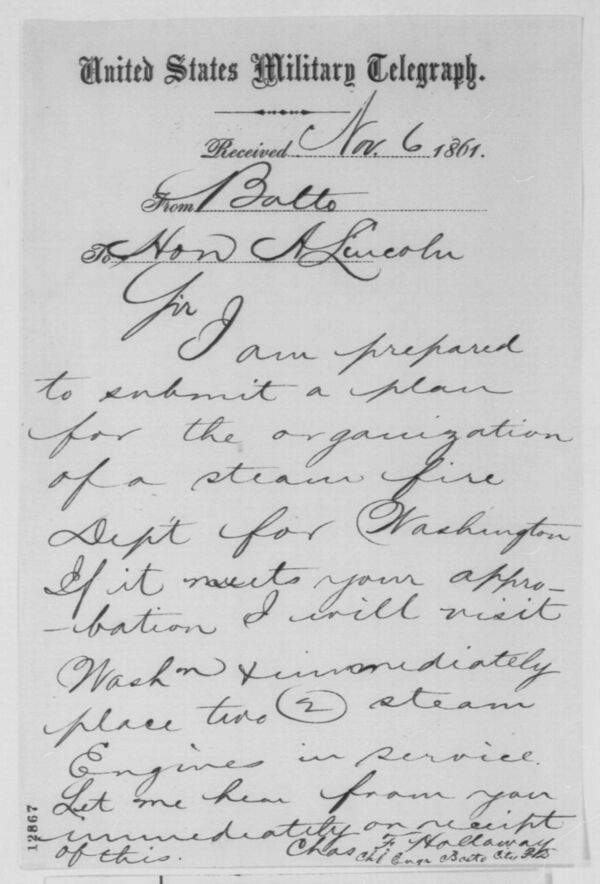 United States Military Telegraph.
Received Nov. 6 1861.
From Balto
To Hon A Lincoln
Sir
I am prepared
to submit a plan
for the organization
of a steam fire
Dep't for Washington
If it meets your appro-
-bation I will visit
Washn & immediately
place two (2) steam
Engines in service.
Let me hear from you
immediately on receipt
of this.
Chas. F. Holloway
Chf Engr Balto City F D
12867